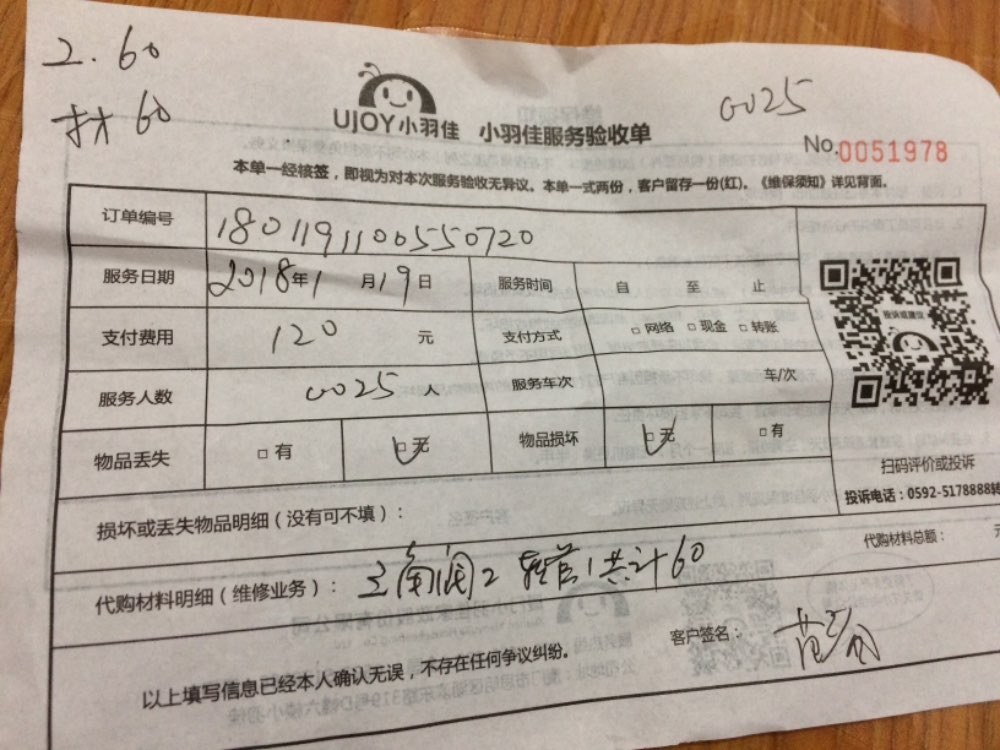 2. 60
材 60
UJOY小羽佳 小羽佳服务验收单
0025
No.0051978
本单一经核签，即视为对本次服务验收无异议。本单一式两份，客户留存一份(红)。《维保须知》详见背面。
订单编号 1801191100550720
服务日期 2018年1月19日 服务时间 自 至 止
支付费用 120 元 支付方式 □ 网络 □ 现金 □ 转账
服务人数 0025 人 服务车次 车/次
物品丢失 □ 有 □ 无 物品损坏 □ 无 □ 有
投诉或建议
扫码评价或投诉
投诉电话：0592-5178888转
损坏或丢失物品明细（没有可不填）：
代购材料明细（维修业务）： 三角阀2 软管1共计60
代购材料总额： 元
客户签名：
以上填写信息已经本人确认无误，不存在任何争议纠纷。